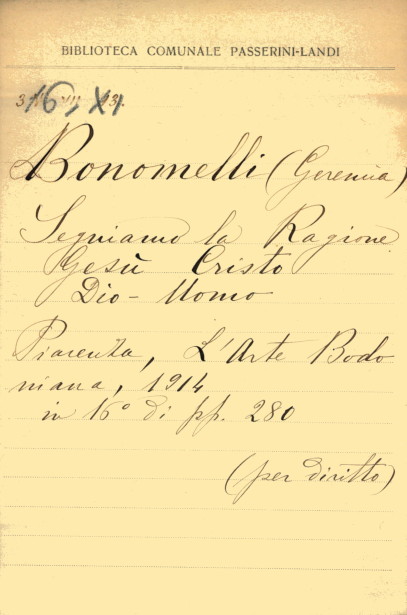 BIBLIOTECA COMUNALE PASSERINI-LANDI
16, XI
Bonomelli (Geremia)
Seguiamo la Ragione
Gesù Cristo
Dio-Uomo
Piacenza, L'Arte Bodo
niana, 1914
in 16° di pp. 280
(per diritto)